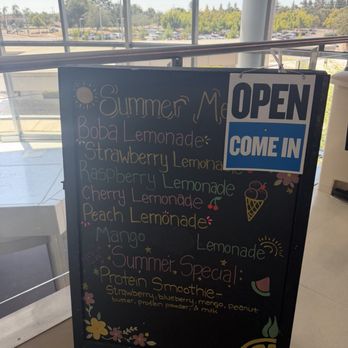 Summer Me
OPEN
COME IN
Boba Lemonade
Strawberry Lemona
Raspberry Lemonade
Cherry Lemonade
Peach Lemonade
Mango Lemonade
Summer Special:
Protein Smoothie-
Strawberry, blueberry, mango, peanut
butter, protein powder, & milk